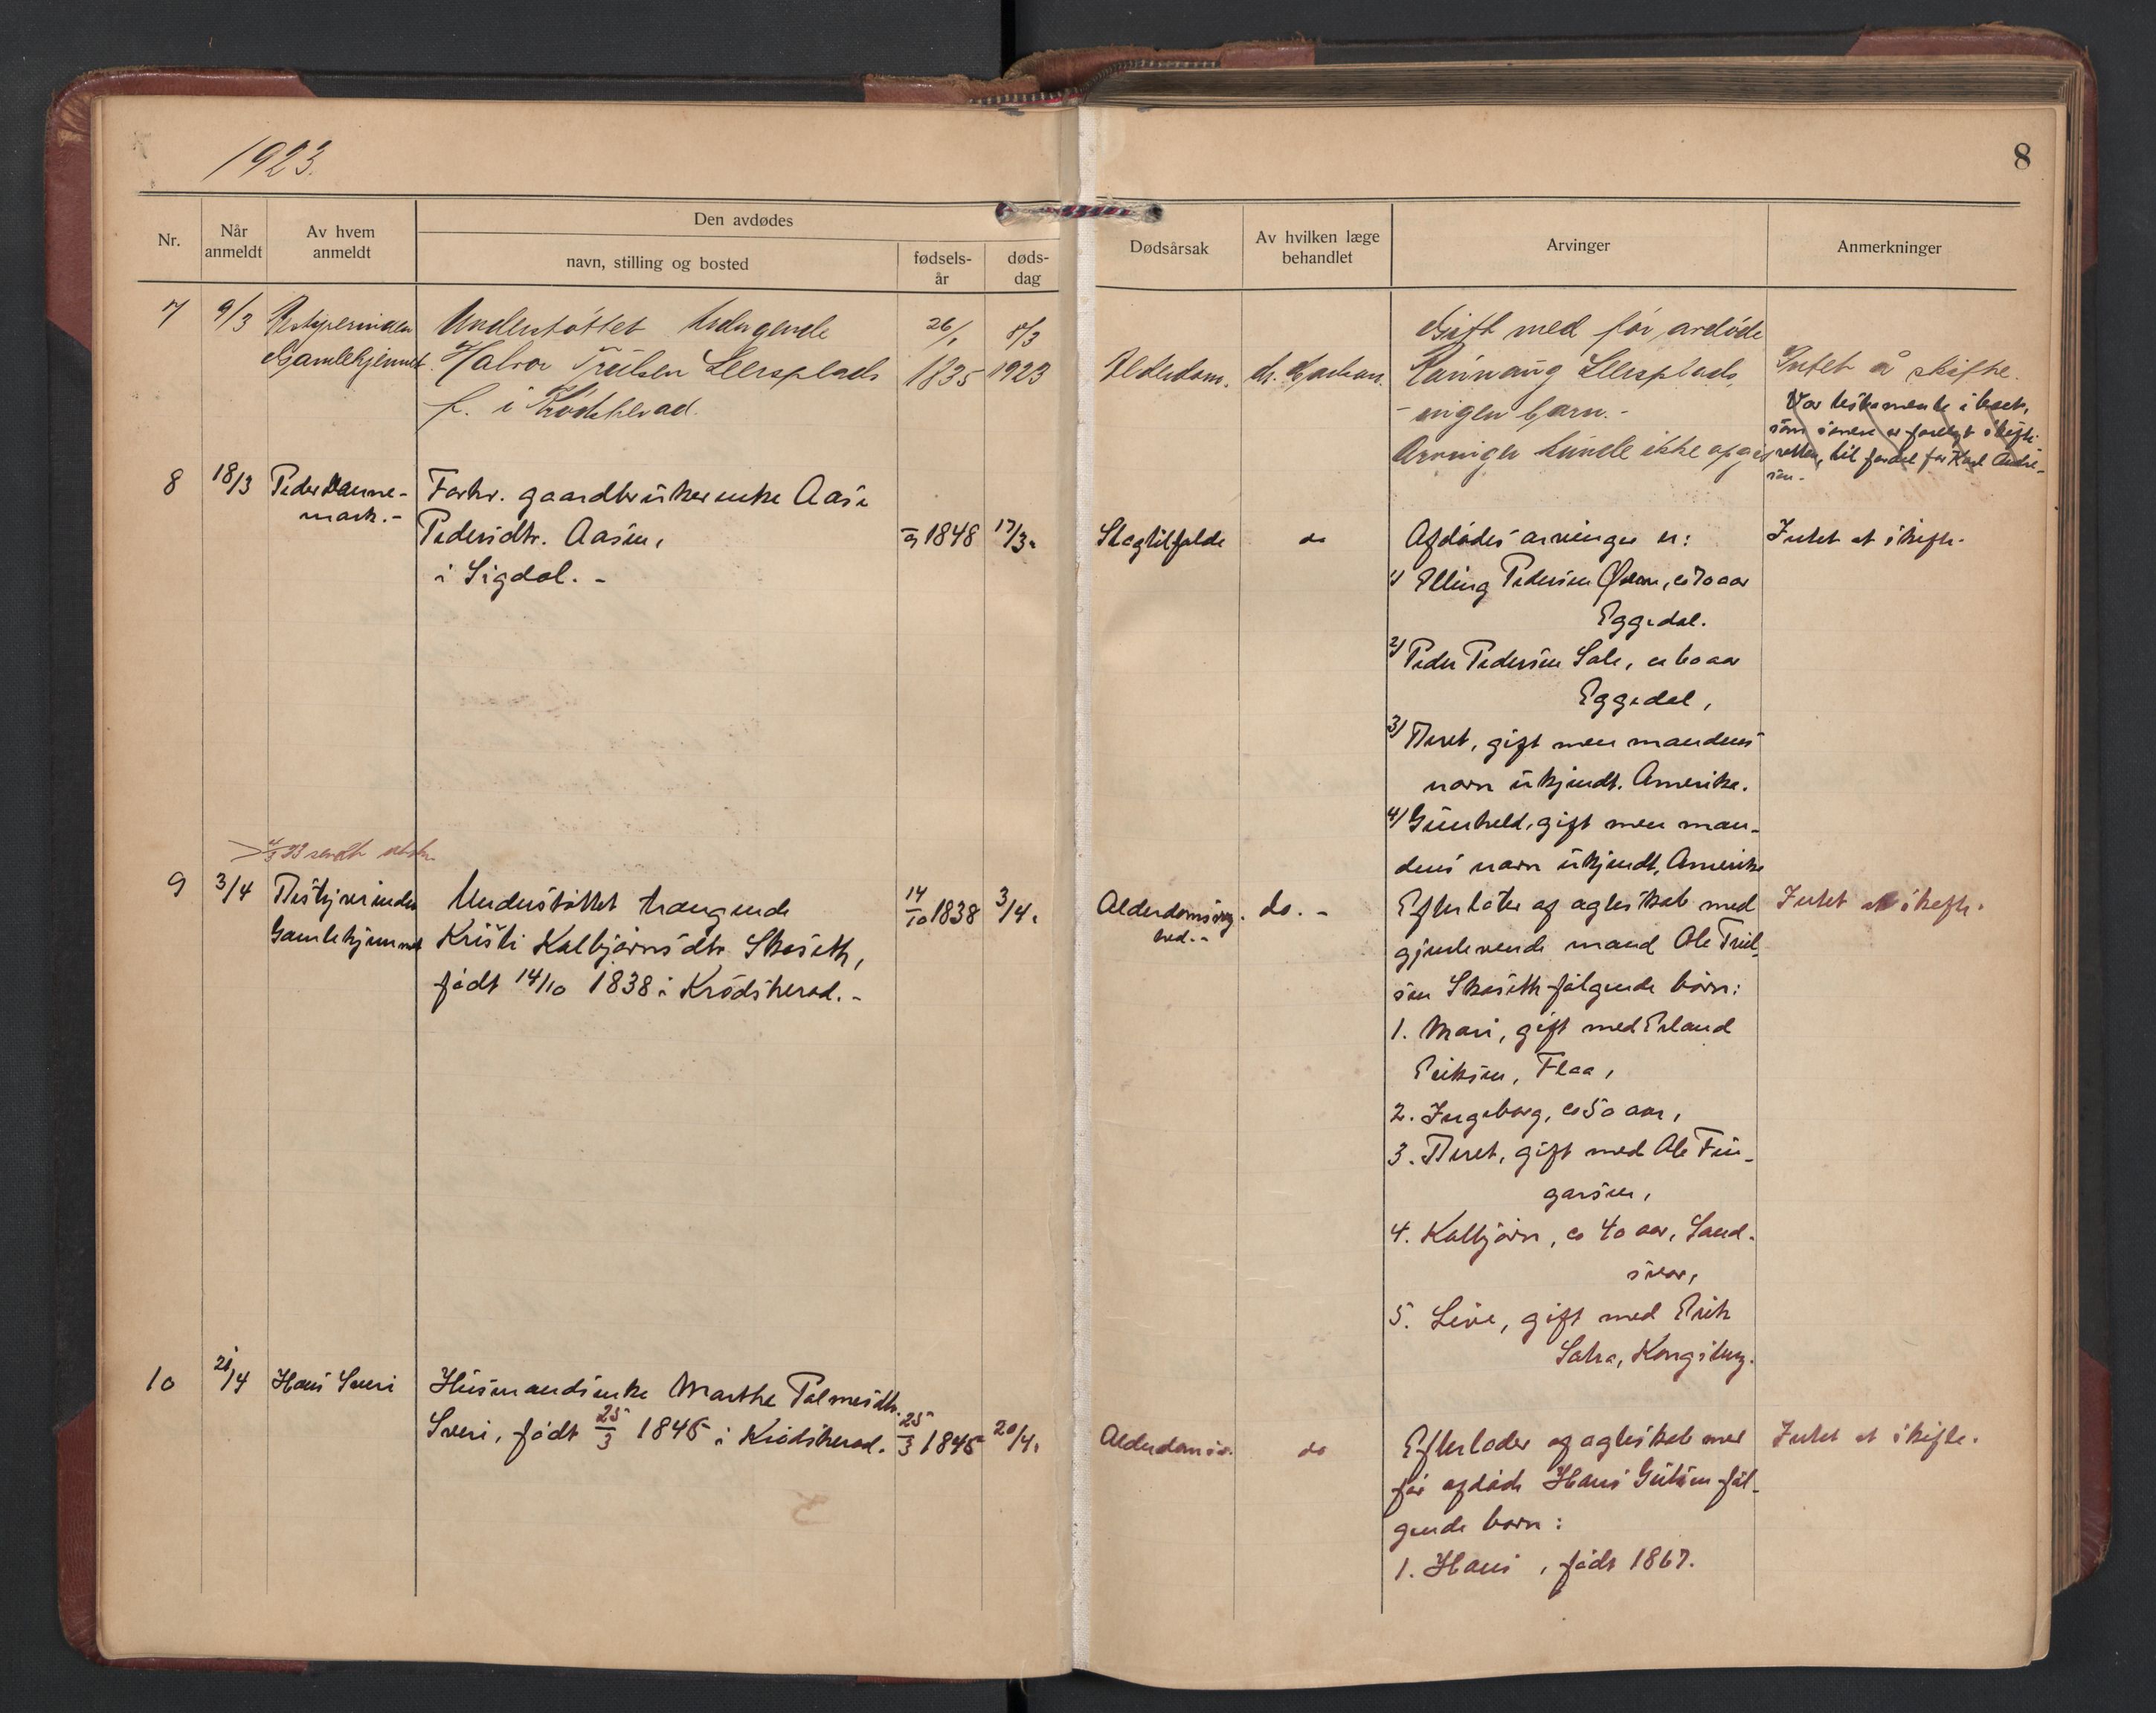 1923.
8
Nr.
Når anmeldt
Av hvem anmeldt
Den avdødes
navn, stilling og bosted
fødsels-år
døds-dag
Dødsårsak
Av hvilken læge behandlet
Arvinger
Anmerkninger
7
9/3
Bestyrerinden
Gamlehjemmet
Understøttet trængende
Halvor Trulsen Leersplads
f. i Krødsherad.
26/1
1835
8/3
1923
Alderdom.
dr.
Gift med før avdøde
Rønnaug Leersplads
- ingen barn. -
Arvinger kunde ikke opgis
Intet å skifte.
Var testamente i boet,
som senere er forelagt skifte-
retten, til fordel for Karl Andre-
sen.
8
18/3
Peder Danne-
mark. -
Forhv. gaardbrukerenke Aase
Pedersdtr. Aasen,
i Sigdal. -
1848
17/3.
Slagtilfælde
do
Afdødes arvinger er:
1) Elling Pedersen, ca 70 aar
Eggedal.
2) Peder Pedersen Sole, ca 60 aar
Eggedal,
3) Beret, gift men mandens
navn ukjendt. Amerika.
4) Gunhild, gift men man-
dens navn ukjendt, Amerika
23 sendt
9
3/4
Bestyrerinden
Gamlehjemmet
Understøttet trængende
Kristi Kolbjørnsdtr. Skaseth,
født 14/10 1838 i Krødsherad. -
14/10 1838
3/4.
Alderdomsvag-
hed. -
do. -
Efterlater af egteskab med
gjenlevende mand Ole Trul-
sen Skaseth følgende børn:
1. Mari, gift med Erland
Eriksen, Flaa,
2. Ingeborg, ca 50 aar,
3. Beret, gift med Ole Fin-
garsen,
4. Kolbjørn, ca 40 aar, Sand-
svær,
5. Live, gift med Erik
Kongsberg.
Intet at skifte.
10
21/4
Hans Sveri
Husmandsenke Marthe Palmesdtr.
Sveri, født 25/3 1845 i Krødsherad.
25/3 1845
20/4.
Alderdomssv.
do
Efterlader af egteskab med
før afdøde Hans Gulsen føl-
gende børn:
1. Hans, født 1867.
Intet at skifte.